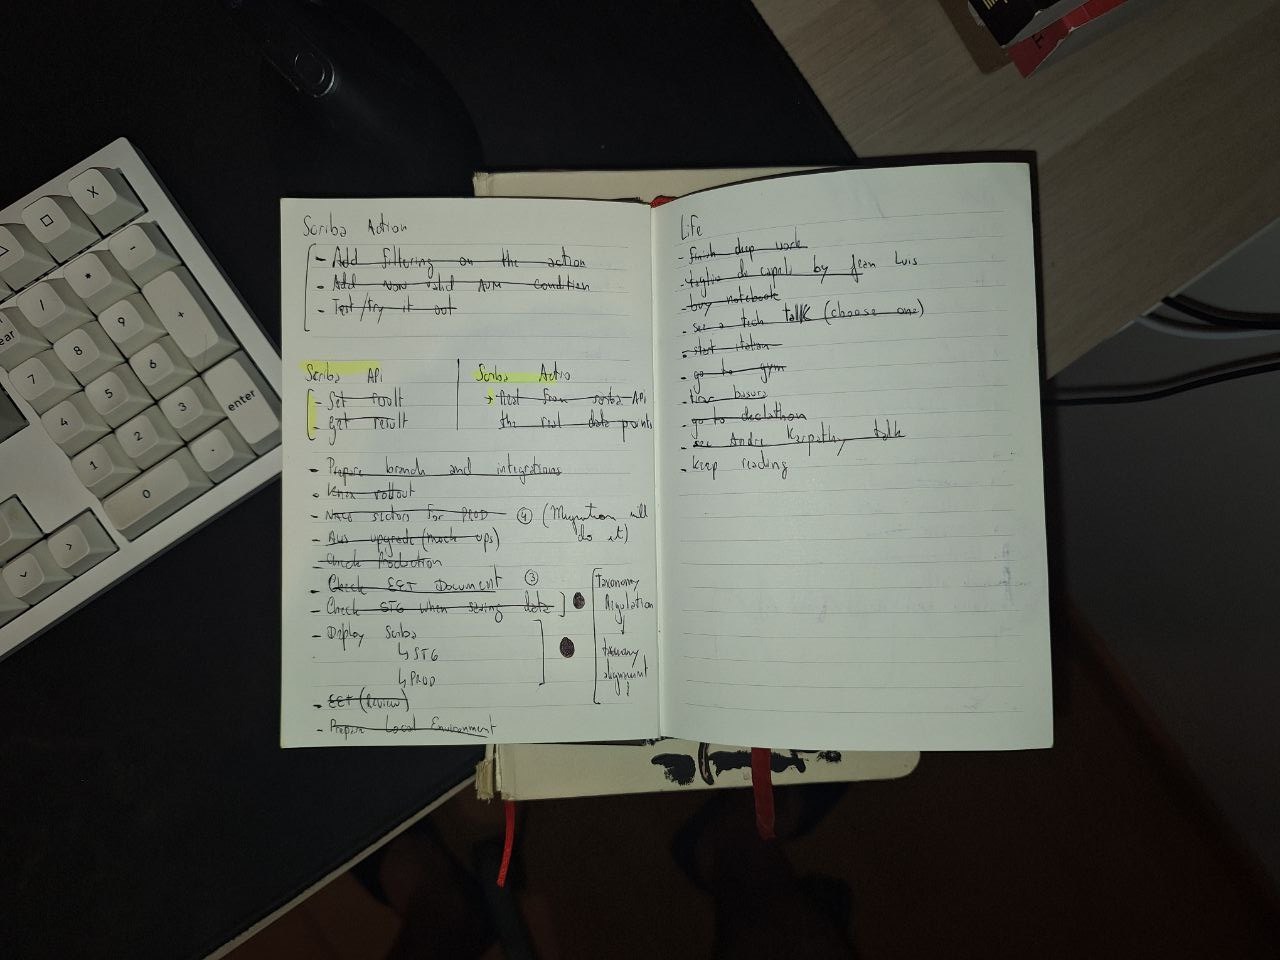 Scriba Action
- Add filtering on the action
- Add non valid AVM condition
- Test/try it out
Scriba API
- Set result
- get result
Scriba Actio
from scriba API
the real data points
- Prepare branch and integrations
- Knox rollout
sectors for PROD ④ (Migration will
do it)
- Aws upgrade (mock ups)
- Check Production
- Check EET Document ③
- Check STG when seeing data
- Deploy Scriba
↳ STG
↳ PROD
- EET (Review)
- Prepare Local Environment
taxonomy
Regulation
↓
taxonomy
alignment
Life
- finish deep work
- taglio de capeli by Jean Luis
- buy notebook
- see a tech talk (choose one)
- start
- go to gym
- tirar basura
- go to decathlon
- see Andre Karpathy talk
- keep reading
X
-
*
/
+
7
8
9
4
5
6
1
2
3
0
.
enter